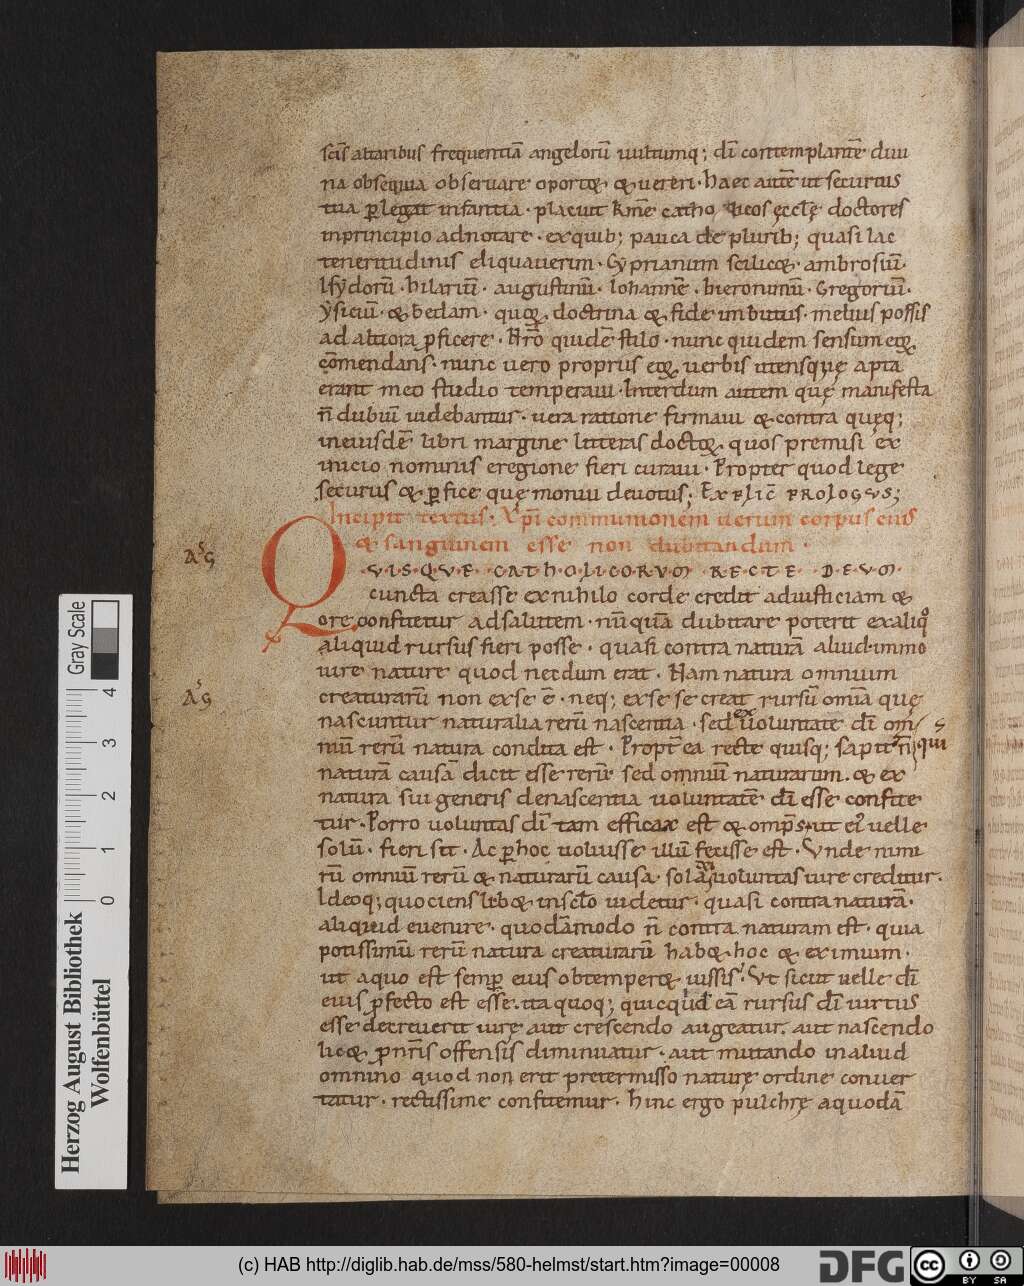 scīs altaribus frequentiā angelorū uultumq; dī contemplantē diui
na obsequia obseruare oportꝫ & uereri. Haec autē ut securius
tua ꝑlegat infantia. placuit kmē catho licos ęccłę doctores
inprincipio adnotare. ex quib; pauca de plurib; quasi lac
teneritudinis eliquauerim. Cyprianum scilicꝫ. ambrosiū.
Isydorū. hilariū. augustinū. Iohannē. hieronimū. Gregoriū.
ysiciū. & bedam. quoꝝ doctrina & fide imbutus. melius possis
ad altiora ꝓficere. Nr̄o quidē stilo. nunc quidem sensum eoꝝ
cōmendans. nunc uero propriis eoꝝ uerbis utensquę apta
erant meo studio temperaui. Interdum autem quę manifesta
n̄ dubiū uidebantur. uera ratione firmaui & contra quęq;
ineiusdē libri margine litteras doctoꝝ quos premisi ex
inicio nominis eregione fieri curaui. Propter quod lege
securus & ꝑfice quę moniui deuotus; Explic̄ prologvs;
Incipit textus. Xp̄i communionem uerum corpus eius
& sanguinem esse non dubitandum.
Q·V·I·S·Q·V·E· C·A·T·H·O·L·I·C·O·R·V·M R·E·C·T·E· D·E·V·M·
AG̅
cuncta creasse ex nihilo corde credit adiusticiam &
ore confitetur adsalutem. nūquā dubitare poterit exaliq°
aliquid rursus fieri posse. quasi contra naturā aliud. immo
iure nature quod necdum erat. Nam natura omnium
AG̅
creaturarū non exse ē. neq; exse se creat rursū omīa quę
nascuntur naturalia rerū nascentia. sed ex uoluntate dī om̄
niū rerū natura condita est. Propt̄ ea recte quisq; sapit n̄ qui
naturā causā dicit esse rerū sed omniū naturarum. & ex
natura sui generis denascentia uoluntatē dī esse confite
tur. Porro uoluntas dī tam efficax est & omp̄s ut ei' uelle
solū. fieri sit. Ac ꝑhoc uoluisse illū fecisse est. Vnde nimi
rū omniū rerū & naturarū causa. sola dī uoluntas iure creditur.
Ideoq; quociens libꝫ insc̄lo uidetur. quasi contra naturā.
aliquid euenire. quodāmodo n̄ contra naturam est. quia
potissimū rerū natura creaturarū habꝫ hoc & eximium.
ut aquo est semꝑ eius obtemperꝫ iussis. Vt sicut uelle dī
eius ꝓfecto est esse. ita quoq; quicquid eā rursus dī uirtus
esse decreuerit iurę aut crescendo augeatur. aut nascendo
licꝫ ꝓnr̄is offensis diminuatur. aut mutando inaliud
omnino quod non erit pretermisso naturę ordine conuer
tatur. rectissime confitemur. Hinc ergo pulchrę aquodā
Herzog August Bibliothek
Wolfenbüttel
0 1 2 3 4
Gray Scale
(c) HAB http://diglib.hab.de/mss/580-helmst/start.htm?image=00008
DFG
cc BY SA